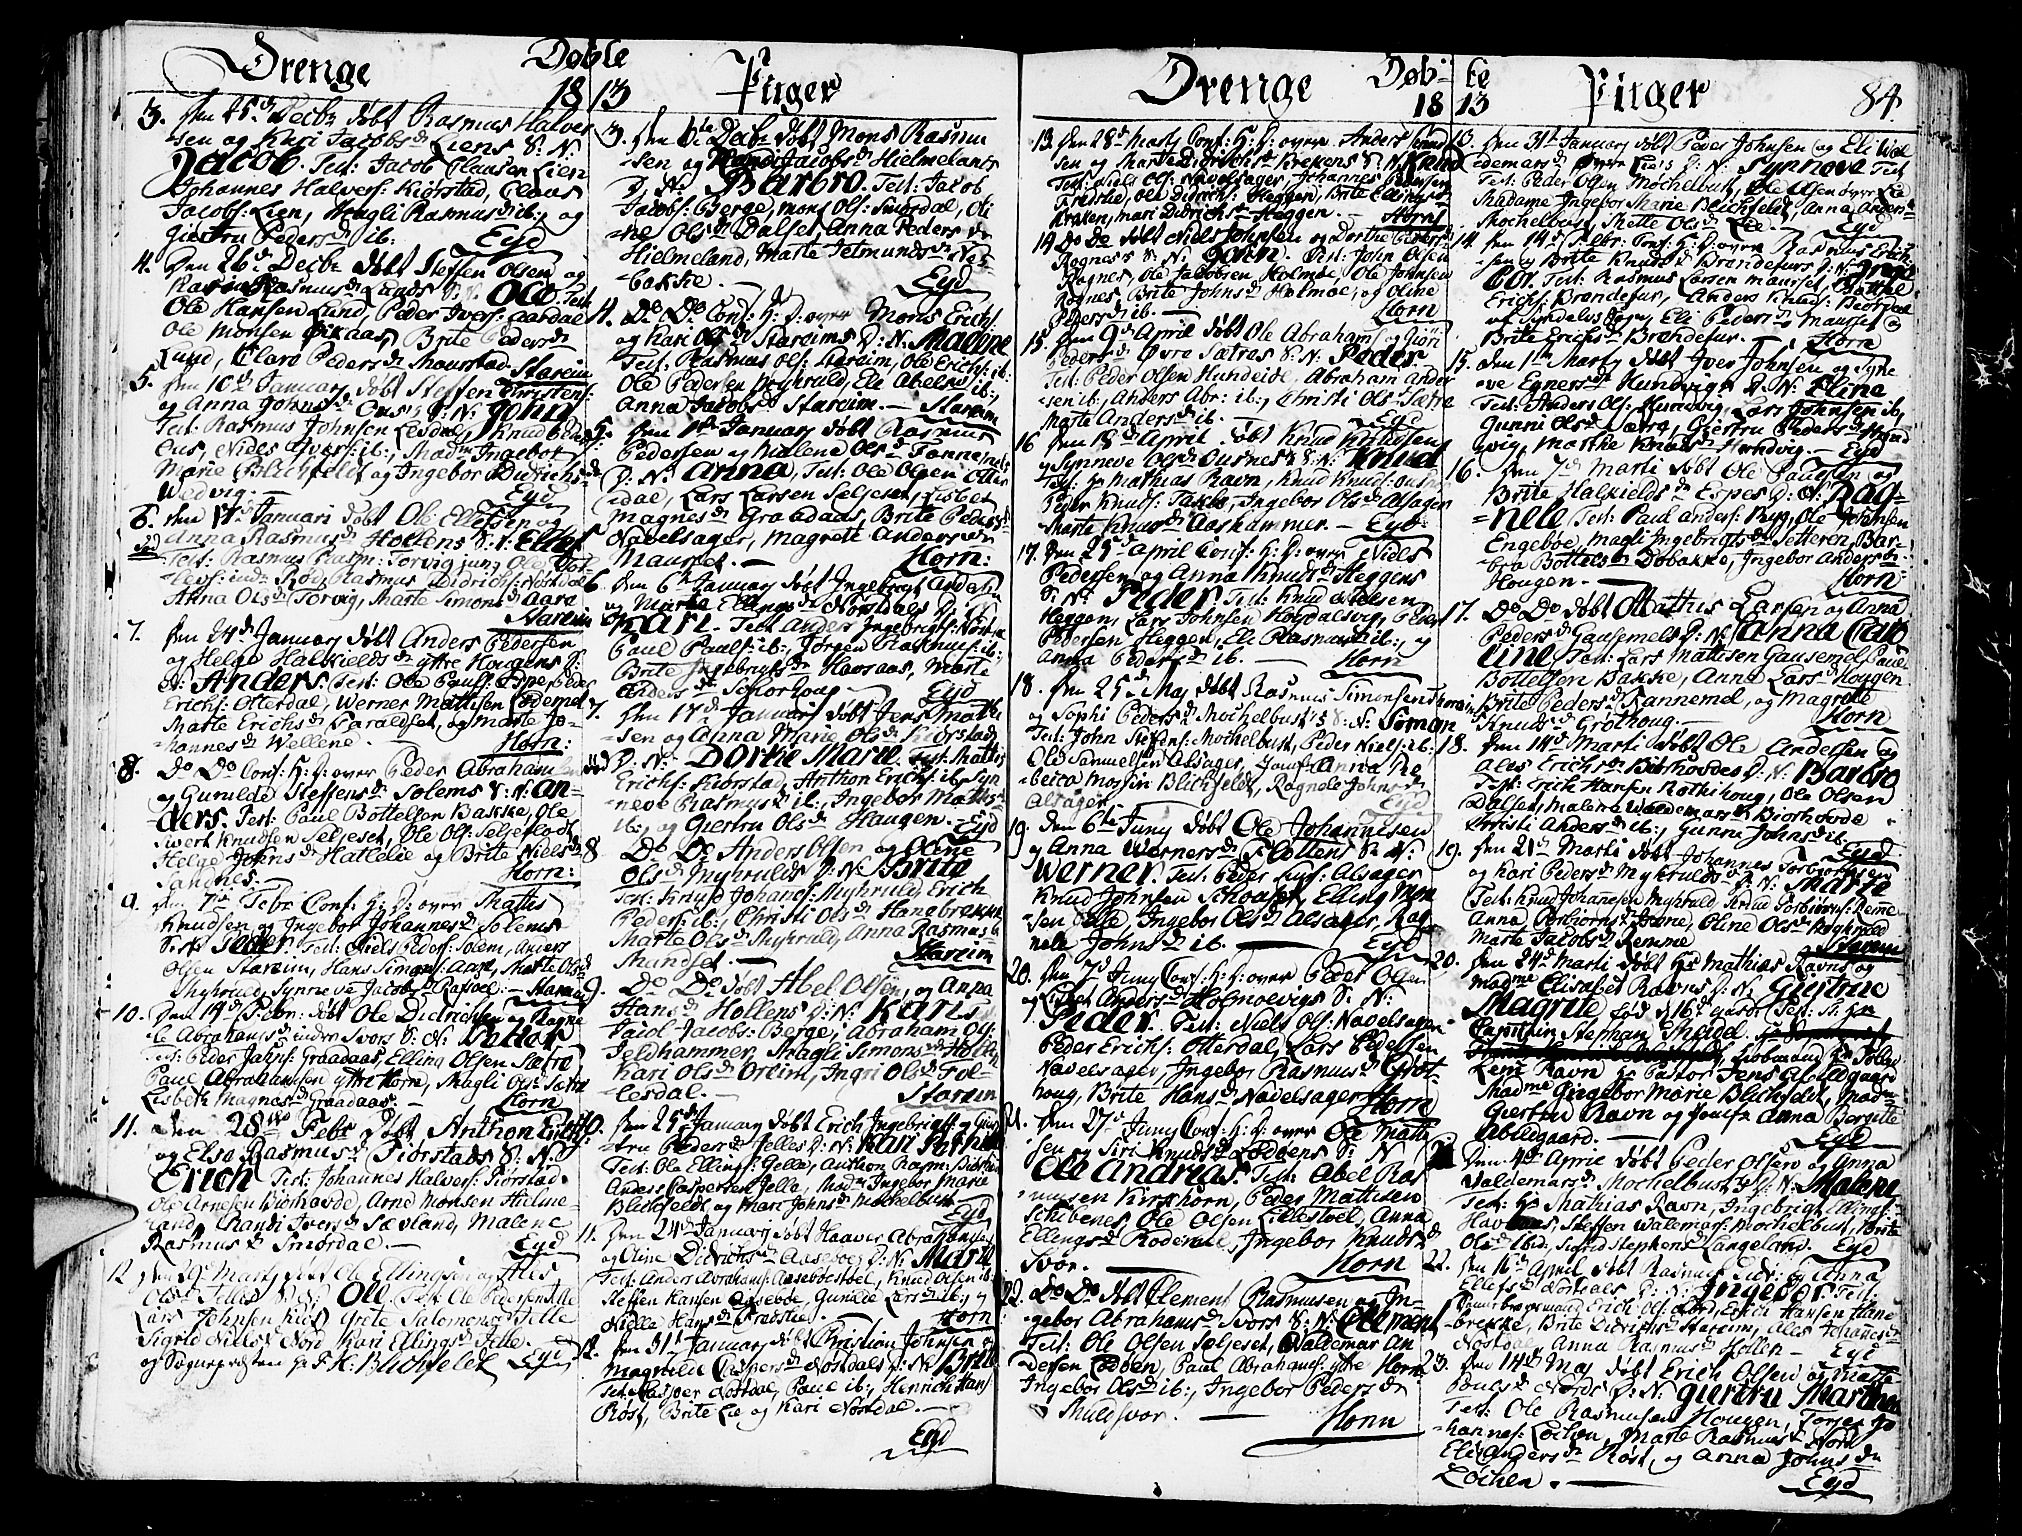 Drenge
Døbte
1813
Piger
3. Den 25d Decbr døbt Rasmus Halver
sen og Kari Jacobsdr Liens S: N:
Jacob. Test: Jacob Claussen Lien
Johannes Halvers: Kiørstad, Claus
Jacobs: Lien, Magli Rasmusdr ib: og
Giertru Pedersdr ib:
Eyd
4. Den 26d Decbr døbt Steffen Olsen og
Karin Rasmusdr Lunds S: N: Ole Test:
Ole Hansen Lund, Peder Ivers: Aardal
Ole Monsen Eikaas, Brite Pedersdr
Lund, Clara Pedersdr Maurstad. Stareim
5. Den 10d January døbt Steffen Christens:
og Anna Johnsdr Ous S: N: John
Test: Rasmus Johnsen Lesdal, Knud Peders
Ous, Niels Ivers: ib:, Madm Ingebor
Marie Blichfeldt og Ingebor Didrichsdr
Wedvig.
Eyd
6. Den 17d Januari døbt Ole Ellefsen og
Anna Rasmusdr Hollens S: N: Ellef
Test: Rasmus Rasm: Torvig jun; Ole
Rasmus Didrichs: Nosdal
Anna Olsdr Torvig, Marte Simonsdr Aarø
Stareim
7. Den 24d January døbt Anders Pedersen
og Helge Halkieldsdr yttre Hougens S:
N: Anders. Test: Ole Pauls: Espe, Peder
Erichs: Otterdal, Werner Mattisen Lødemel
Marte Erichsdr Taraldset og Marte Jo-
hannesdr Wellene.
Horn:
8. Do Do Conf: H: D: over Peder Abrahamsen
og Gunilde Steffensdr Solems S: N: An-
ders. Test: Paul Bottelsen Bakke, Ole
Sivert Knudsen Seljeset, Ole Ols: Seljeflodt
Helge Johnsdr Hattelie og Brite Nielsdr
Sandnes.
Horn:
9. Den 7de Febr Conf: H: D: over Mattis
Knudsen og Ingebor Johannesdr Solems
S: N: Peder. Test: Niels Peders: Solem, Anders
Olsen Stareim, Hans Simons: Aase, Marte Olsdr
Myhruld, Synneve Jacobsdr Rafoel. Stareim
10. Den 14d Febr: døbt Ole Didrichsen og Ragne
le Abrahamsdr indre Svors S: N: Petter
Test: Peder Jahns: Graadaas, Elling Olsen Sætre
Paul Abrahamsen yttre Horn, Magli Olsdr Sætre
Lisbeth Magnesdr Graadaas.
Horn
11. Den 28de Febr døbt Anthon Erichs:
og Else Rasmusdr Fiørstads S: N:
Erich Test: Johannes Halvers: Fiørstad.
Ole Arnesen Biørhovde, Arne Monsen Hielme
land, Randi Iversdr Sævland, Malene
Rasmusdr Smørdal.
Eyd
12. Den 29d Marty døbt Ole Ellingsen og Ales
Olsdr Jelles S: N: Ole. Test: Ole Pedersen Jelle
Lars Johnsen Kids, Grete Salomonsdr Jelle
Sigrid Nielsdr Nord, Kari Ellingsdr Jelle
og Sognepresten Hr F: H: Blichfeldt Eyd
3. Den 6te Decbr døbt Mons Rasmu
sen og Randi Jacobsdr Hielmelands
D: N: Barbro. Test: Jacob
Jacobs: Berge, Mons Ols: Smørdal, Oli
ne Olsdr Dalset, Anna Pedersdr
Hielmeland, Marte Jetmundsdr Nes-
bakke.
Eyd
4. Do Do Conf: H: D: over Mons Erichs:
og Kari Olsdr Stareims D: N: Malene
Test: Rasmus Ols: Stareim, Ole Erichs: ib:
Ole Pedersen Myhruld, Eli Abelsdr ib:,
Anna Jacobsdr Stareim. Stareim
5. Den 1te January døbt Rasmus
Pedersen og Malene Olsdr Tannemels
D: N: Anna, Test: Ole Olsen Otter
dal, Lars Larsen Seljeset, Lisbet
Magnesdr Graadaas, Brite Pedersdr
Navelsager, Magrete Andersdr
Maurset.
Horn:
6. Den 6te January døbt Ingebrigt Andersen
og Marte Ellingsdr Norsdals D: N:
Kari. Test: Anders Ingebrigts: Norsdal
Paul Pauls: ib:, Jørgen Rasmus: ib:,
Brite Ingebrigtsdr Havsaas, Marte
Andersdr
Eyd
7. Den 17d January døbt Jens Matti
sen og Anna Marie Olsdr Kiørstads
D: N: Dorthe Marie. Test: Mattis
Erichs: Kiørstad, Anthon Erichs: ib: Syn
neve Rasmusdr ib:, Ingebor Mattisdr
ib:, og Giertru Olsdr Haugen. Eyd
8. Do Do Anders Olsen og Olene
Olsdr Myhrulds D: N: Brite
Test: Knud Johans: Myhruld, Erich
Peders: ib:, Christi Olsdr Hanebrekke
Marte Olsdr Myhruld, Anna Rasmusdr
Mandset.
Stareim
9. Do Do døbt Abel Olsen, og Anna
Hansdr Hollens D: N: Kari.
Jacob Jacobs: Berge, Abraham Ols:
Feldhammer, Magli Simonsdr Hollen
Kari Olsdr Oreim, Ingri Olsdr Fol-
lesdal.
Stareim
10. Den 25d January døbt Erich Ingebrigts: og Giær
tru Pedersdr Jelles D: N: Kari Pernille
Test: Ole Ellings: Jelle, Anthon Rasm: Biørhovde
Anders Caspersen Jelle, Madm Ingebor Marie
Blichfeldt og Mari Johnsdr Mochelbust.
Eyd
11. Den 24d January døbt Haaver Abrahamsen
og Oline Didrichsdr Aasebøes D: N: Marte
Test: Anders Abrahams: Aasebøestøel, Knud Olsen ib:
Steffen Hansen Aasebøe, Gunilde Larsdr ib:, og
Nielle Hansdr Taabstie.
Horn
12. Den 31te January døbt Christian Johnsen og
Magnilde Caspersdr Nosdals D: N: Brite
Test: Casper Nosdal, Paul ib:, Henrich Hans:
Røst, Brite Lie og Kari Nosdal.
Eyd
Drenge
Døbte
1813
Piger
84.
13. Den 28d Marty Conf: H: D: over Anders Knud
sen og Mari Didrichsdr Krekens S: N: Knud
Test: Niels Ols: Navelsager, Johannes Pedersen
Freskie, Ole Didrichs: Heggen, Brite Ellingsdr
Kraken, Mari Didrichsdr Heggen. Horn
14. Do Do døbt Niels Johnsen og Dorthe Pedersdr
Rognes S: N: John. Test: John Olsen
Rognes, Ole Jacobsen Holmøe, Ole Johnsen
Rognes, Brite Johnsdr Holmøe, og Oline
Pedersdr ib.
Horn
15. Den 9d April døbt Ole Abrahams: og Giøri
Pedersdr Øvre Sætres S: N: Peder.
Test: Peder Olsen Hundeide, Abraham Ander
sen ib:, Anders Abr: ib:, Christi Olsdr Sætre
Marte Andersdr ib.
Eyd
16 Den 18d April døbt Knud Knudsens
og Synneve Olsdr Ousnes S: N: Knud
Test: Hr Mathias Ravn, Knud Knuds: Ousnes
Peder Knuds: Takle, Ingebor Olsdr Alsager
Marte Knudsdr Aashammer. Eyd
17. Den 25d April Conf: H: D: over Niels
Pedersen og Anna Knudsdr Heggens
S: N: Peder Test: Knud Nielsen
Heggen, Lars Johnsen Hoydalsvig, Peder
Pedersen Heggen, Eli Rasmusdr ib:, og
Anna Pedersdr ib.
Horn
18. Den 25d Maj døbt Rasmus Simonsen
og Sophi Pedersdr Mochelbusts S: N: Simon
Test: John Steffens: Mochelbust, Peder Niels: ib:
Ole Samuelsen Alsager, Jomf: Anna Re
becca Mossin Blichfeldt, Ragnele Johnsdr
Alsager.
Eyd
19. Den 6te Juny døbt Ole Johannesen
og Anna Wernersdr Flottens S: N:
Werner. Test: Peder Alsager
Knud Johnsen Schoaset, Elling Mon
sen Ølle, Ingebor Olsdr Alsager, Rag
nele Johnsdr ib.
Eyd
20. Den 7d Juny Conf: H: D: over Peder Olsen
og Lisbet Andersdr Holmøevigs S: N:
Peder. Test: Niels Ols: Navelsager
Peder Erichs: Otterdal, Lars Pedersen
Navelsager, Ingebor Rasmusdr Grot-
houg, Brite Hansdr Navelsager Horn
21. Den 27d Juny Conf: H: D: over Ole Matti
sen og Siri Knudsdr Lødøens S: N
Ole Andreas. Test: Abel Ras
musen Kirkhorn, Peder Mattisen
Schibenes, Ole Olsen Lillestøel, Anna
Ellingsdr Rødemel, Ingebor Knudsdr
Svor.
Horn
22. Do Do døbt Clement Rasmusen og In-
gebor Abrahamsdr Svors S: N: Clement
Test: Ole Olsen Seljeset, Waldemar An
dersen Lødøen, Paul Abrahams: yttre Horn
Ingebor Olsdr ib:, Ingebor Pedersdr
Muldsvor.
Horn
13. Den 31te January døbt Peder Johnsen og Eli Wal
demarsdr Øvre Lies D: N: Synnøve Test
Test: Peder Olsen Mochelbust, Ole Olsen øvre Lie
Madame Ingebor Marie Blichfeldt, Anna Andersdr
Mochelbust, Mette Olsdr Lie.
Eyd
14. Den 14d Febr: Conf: H: D: over Rasmus Erich
sen og Brite Knudsdr Brandefurs D: N: Inge
bor. Test: Rasmus Larsen Maurset, Bakke
Erichs: Brandefur, Anders Knuds:
af Gyndelvs Sogn, Eli Pedersdr Maurset og
Brite Erichsdr Brandefur.
Horn
15. Den 1te Marty døbt Iver Johnsen og Syne
ve Egnersdr Hundvigs D: N: Eline
Test: Anders Ols: Hundvig, Lars Johnsen ib,
Gunni Olsdr Nærø, Giertru Pedersdr Hund
vig, Marthe Knudsdr Hundvig. Eyd
16. Den 7d Marti døbt Ole Paulsen og
Brite Halkieldsdr Espes D: N: Rag-
nele. Test: Paul Anders: Ryg, Ole Johnsen
Engebøe, Magli Ingebrigtsdr Setteren, Bar-
bra Bottelsdr Dobakke, Ingebor Andersdr
Hougen.
Horn:
17. Do Do døbt Mathis Larsen og Anna
Pedersdr Gausemels D: N: Anna Caro
line. Test: Lars Mattisen Gausemel, Paul
Bottelsen Bakke, Anna Larsdr Hoggen
Brite Pedersdr Rannemel, og Magrete
Knudsdr Grothoug.
Horn
18. Den 14d Marti døbt Ole Andersen og
Ales Erichsdr Biørhovdes D: N: Barbro
Test: Erich Hansen Rothihoug, Ole Olsen
Dalset, Malena Waldemarsdr Biørhovde
Christi Andersdr ib:, Gunni Johnsdr ib.
Eyd
19. Den 21d Marti døbt Johannes Torbiørnsen
og Kari Pedersdr Myhrulds D: N: Marte
Test: Knud Johannesen Myhruld, Knud Torbiørns: Remme
Anna Torbiørnsdr ibme, Oline Olsdr Myhruld
Marte Jacobsdr Remme
Stareim
20. Den 24d Marti døbt Hr Mathias Ravns og
Madme Elisabet Ravns D: N: Giertrue
Magrete fød d 16de ejusdr Test: Hr
Capitain Stephan Meidel,
Lieutenand Hr Tollef
Lem Ravn, Hr Pastor Jens Abildgaard
Madme Ingebor Marie Blichfeldt, Madme
Giertru Ravn og Jomfr Anna Bergitte
Abildgaard.
Eyd
21. Den 4d April døbt Peder Olsen og Anna
Valdemarsdr Mochelbusts D: N: Malene
Test: Hr Mathias Ravn, Ingebrigt Ellings:
Havsaas, Steffen Walemars: Mochelbust, Brite
Olsdr ibid, Sigrid Stephensdr Langeland. Eyd
22. Den 16d April døbt Rasmus Didr: og Anna
Ellefsdr Nosdals D: N: Ingebor Test:
Erich Ols: Nord, Erich Hansen Hane
brekke, Brite Didrichsdr Stareim, Ales Johannesdr
Nosdal, Anna Rasmusdr Hollen
Eyd
23. Den 14d Maj døbt Erich Olsen og Mette
Paulsdr Nords D: N: Giertru Martha
Test: Ole Rasmusen Hougen, Torjer Jo
hannes: Løchen, Marte Rasmusdr Nord
Eli Andersdr Røst, og Anna Johnsdr
Løchen.
Eyd